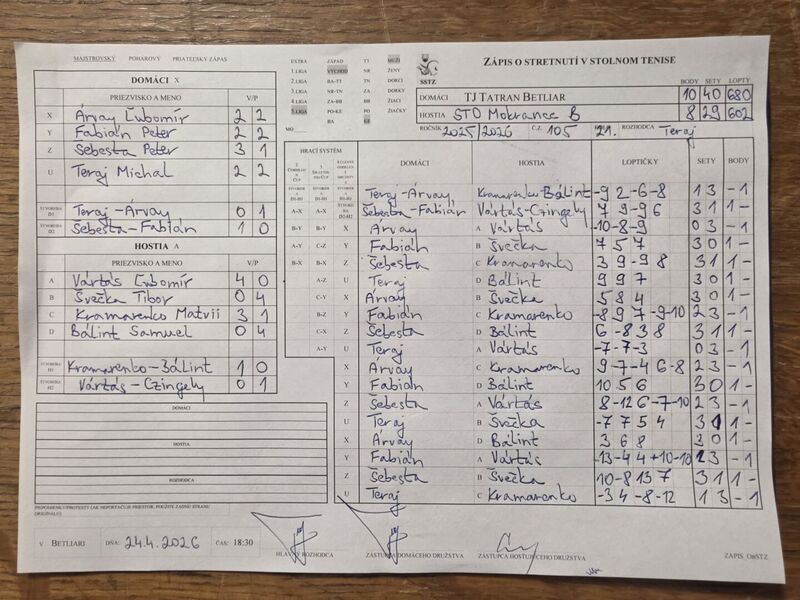 MAJSTROVSKÝ POHÁROVÝ PRIATEĽSKÝ ZÁPAS
DOMÁCI X
PRIEZVISKO A MENO V/P
X Árvay Ľubomír 2 2
Y Fabián Peter 2 2
Z Šebesta Peter 3 1
U Teraj Michal 2 2
ŠTVORHRA D1 Teraj - Árvay 0 1
ŠTVORHRA D2 Šebesta - Fabián 1 0
HOSTIA A
PRIEZVISKO A MENO V/P
A Vártás Ľubomír 4 0
B Švečka Tibor 0 4
C Kramarenko Matvii 3 1
D Bálint Samuel 0 4
ŠTVORHRA H1 Kramarenko - Bálint 1 0
ŠTVORHRA H2 Vártás - Czingely 0 1
DOMÁCI
HOSTIA
ROZHODCA
PRIPOMIENKY/PROTESTY (AK NEPOSTAČUJE PRIESTOR, POUŽITE ZADNÚ STRANU ORIGINÁLU)
V BETLIARI DŇA: 24.4.2026 ČAS: 18:30
EXTRA ZÁPAD TJ MUŽI
1.LIGA VÝCHOD NR ŽENY
2.LIGA BA-TT TN DORCI
3.LIGA NR-TN ZA DORKY
4.LIGA ZA-BB BB ŽIACI
5.LIGA PO-KE PO ŽIAČKY
BA KE
MO
SSTZ
ZÁPIS O STRETNUTÍ V STOLNOM TENISE
BODY SETY LOPTY
DOMÁCI TJ TATRAN BETLIAR 10 40 680
HOSTIA STO Mokrance B 8 29 602
ROČNÍK 2025/2026 Č.Z. 105 21. ROZHODCA Teraj
HRACÍ SYSTÉM DOMÁCI HOSTIA LOPTIČKY SETY BODY
Teraj - Árvay Kramarenko - Bálint -9 2 -6 -8 1 3 - 1
Šebesta - Fabián Vártás - Czingely 7 9 -9 6 3 1 1 -
A-X A-X X Árvay A Vártás -10 -8 -9 0 3 - 1
B-Y B-Y Y Fabián B Švečka 7 5 7 3 0 1 -
A-Y C-Z Z Šebesta C Kramarenko 3 9 -9 8 3 1 1 -
B-X B-X U Teraj D Bálint 9 9 7 3 0 1 -
A-Z X Árvay B Švečka 5 8 4 3 0 1 -
C-Y Y Fabián C Kramarenko -8 9 7 -9 -10 2 3 - 1
B-Z Z Šebesta D Bálint 6 -8 3 8 3 1 1 -
C-X U Teraj A Vártás -7 -7 -3 0 3 - 1
A-Y X Árvay C Kramarenko 9 -7 -4 6 -8 2 3 - 1
Y Fabián D Bálint 10 5 6 3 0 1 -
Z Šebesta A Vártás 8 -12 6 -7 -10 2 3 - 1
U Teraj B Švečka -7 7 5 4 3 1 1 -
X Árvay D Bálint 3 6 8 3 0 1 -
Y Fabián A Vártás 2 3 - 1
Z Šebesta B Švečka 10 -8 13 7 3 1 1 -
U Teraj C Kramarenko -3 4 -8 -12 1 3 - 1
HLAVNÝ ROZHODCA ZÁSTUPCA DOMÁCEHO DRUŽSTVA ZÁSTUPCA HOSŤUJÚCEHO DRUŽSTVA ZÁPIS_OSSTZ